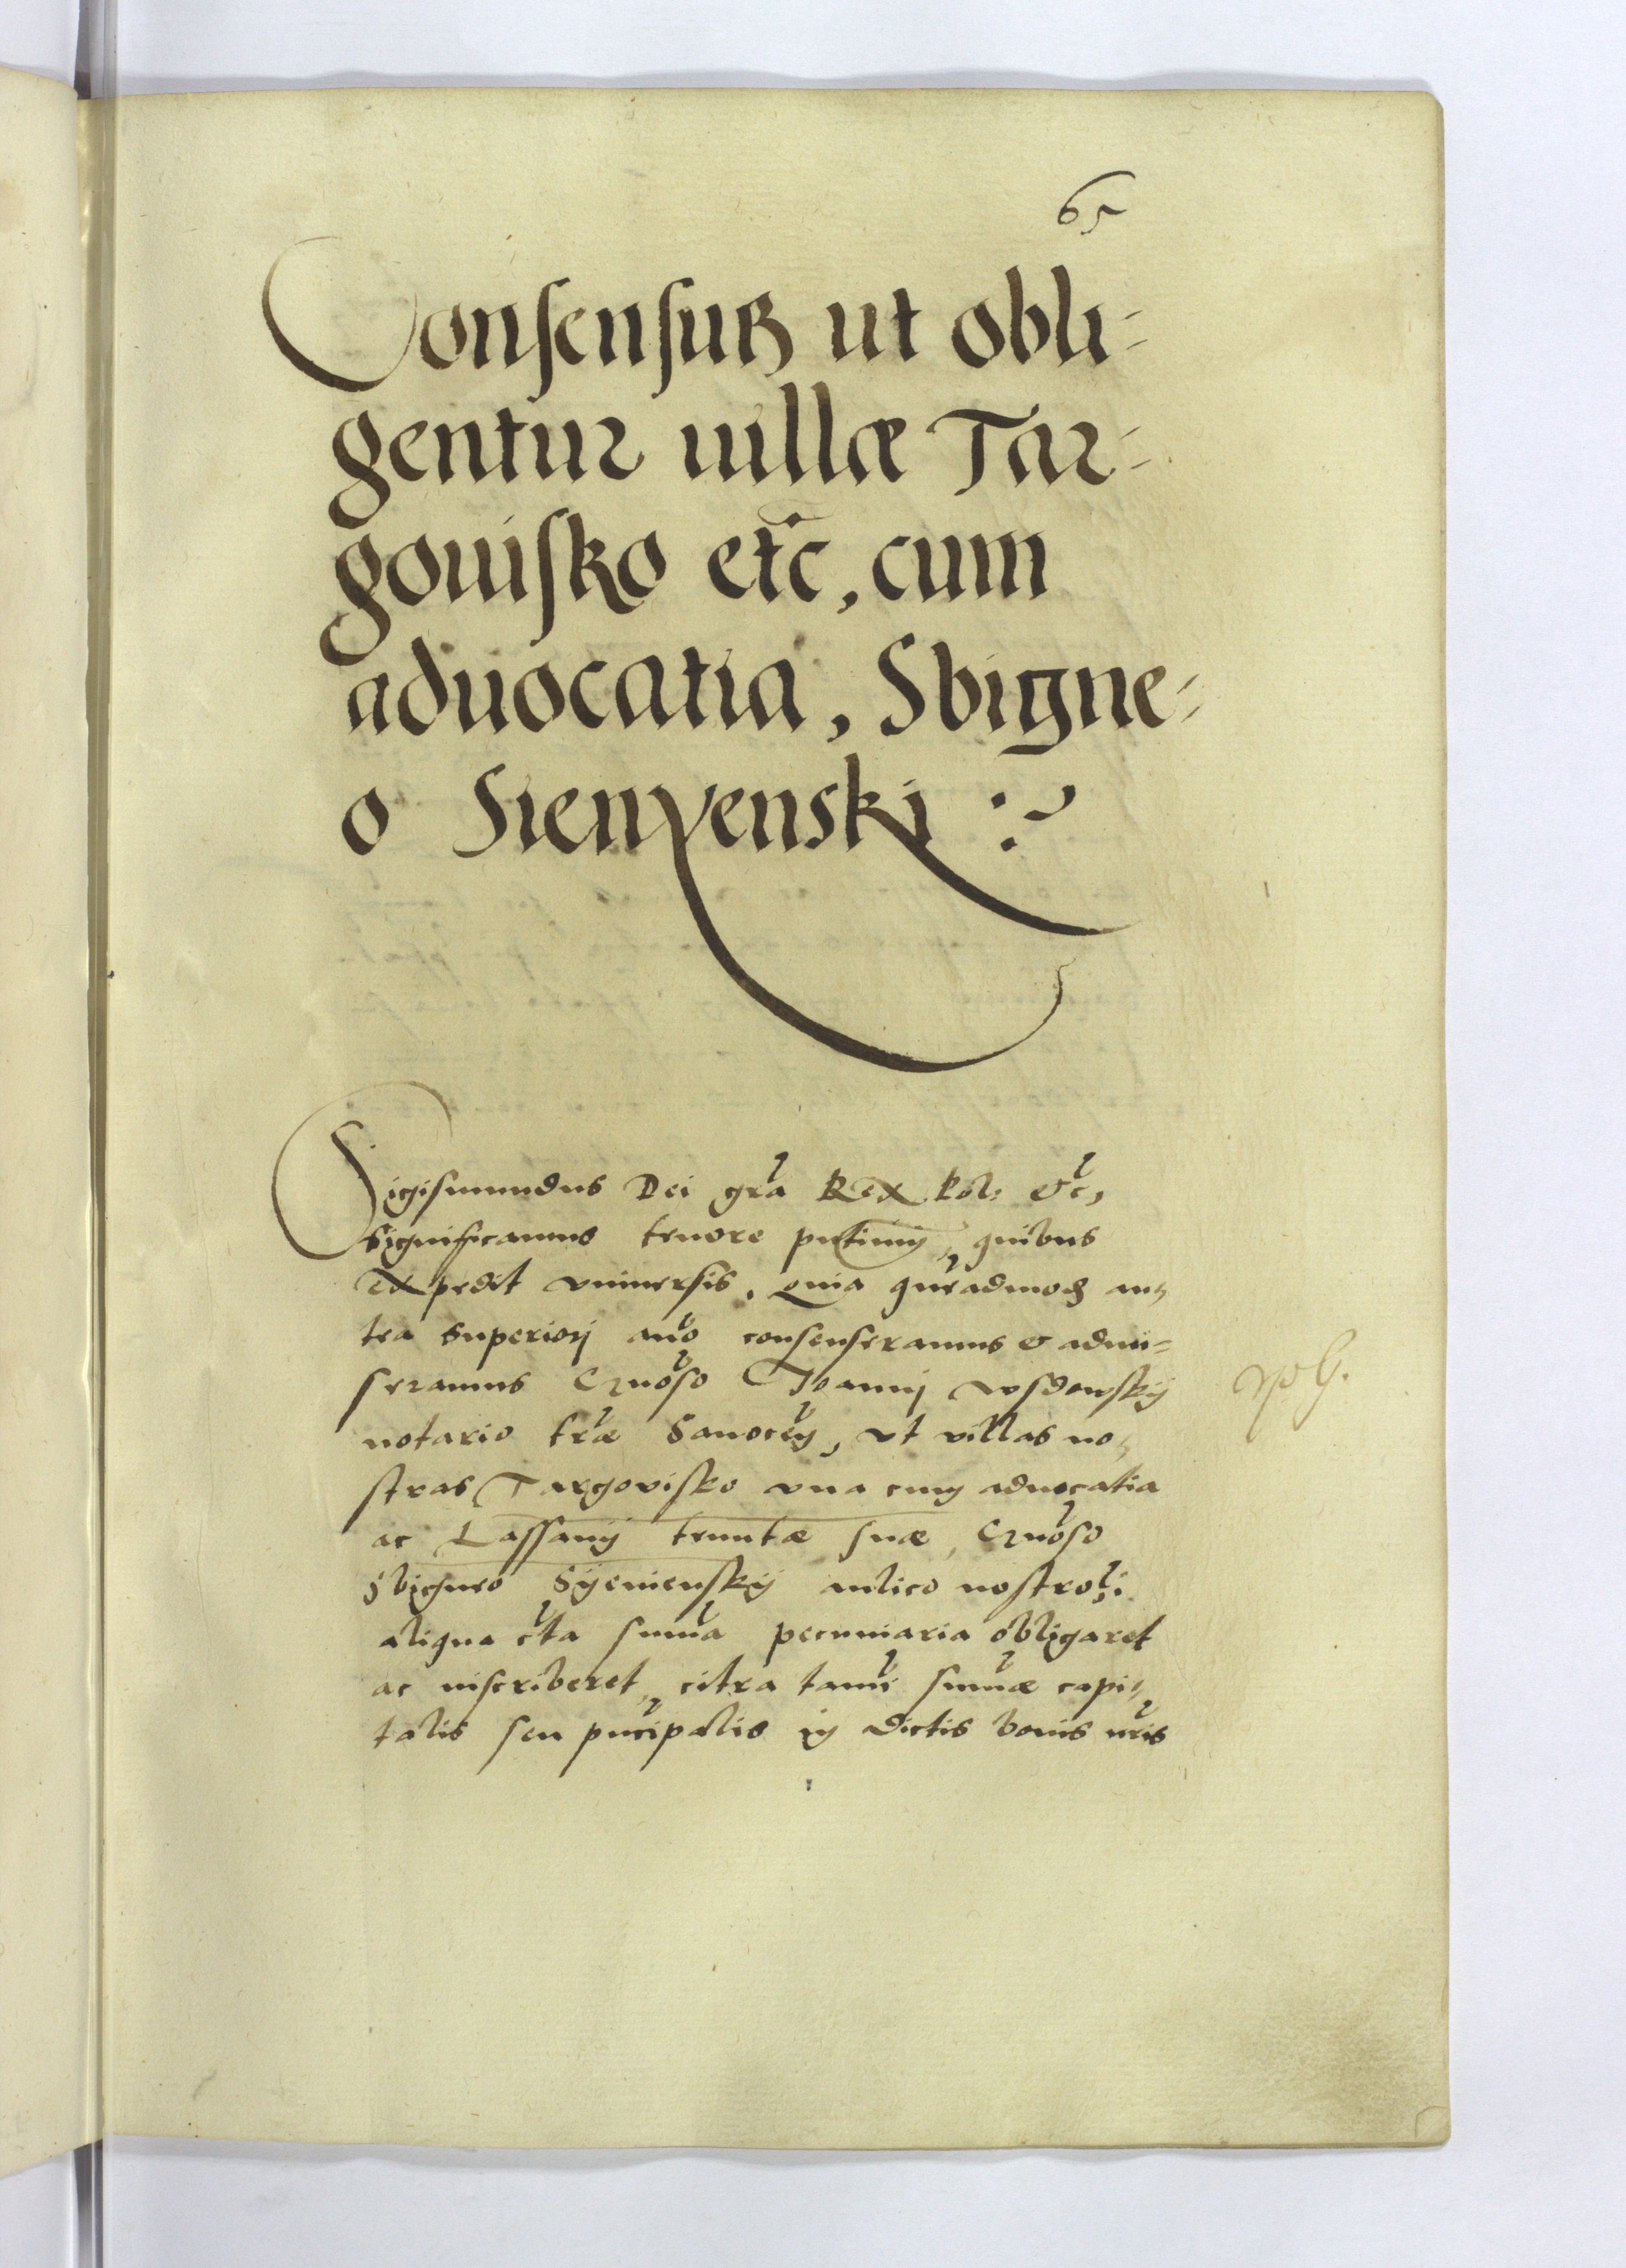 65
Consensus ut obli-
gentur uillæ Tar-
gouisko etc, cum
aduocatia, Sbigne-
o Sienyenskj
Sigismundus Dei gra Rex Pol: &c,
Significamus tenore pntium, quibus
expedit vniuersis, Quia queadmod an,
tea superiorj año consenseramus & admi-
seramus Gñoso Joannj Wsdowskij
notario træ Sanocen, vt villas no,
stras Targovisko vna cum aduocatia
ac Lassany tenutæ suæ, Gñoso
Sbigneo Syenienskij aulico nostro, i
aliqua cta suma pecuniaria obligaret
ac inscriberet, citra tamn sumæ capi,
talis seu pncipalis in dictis bonis nris